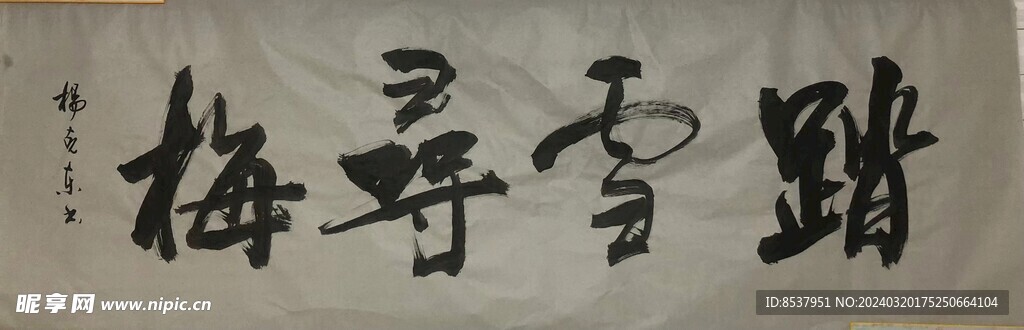 踏雪尋梅
楊克東书
昵享网 www.nipic.cn
ID:8537951 NO:20240320175250664104